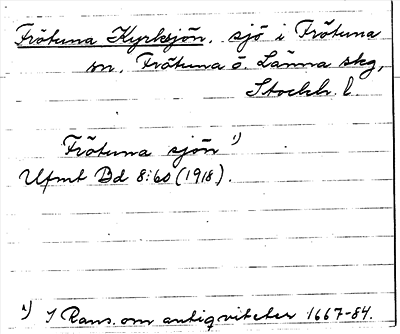 Frötuna Kyrksjön, sjö i Frötuna
sn, Frötuna o Länna skg,
Stockh. l
Frötuna sjön ¹)
Ufmt Bd 8:60 (1918).
¹) I Rans. om antiqviteter 1667-84.